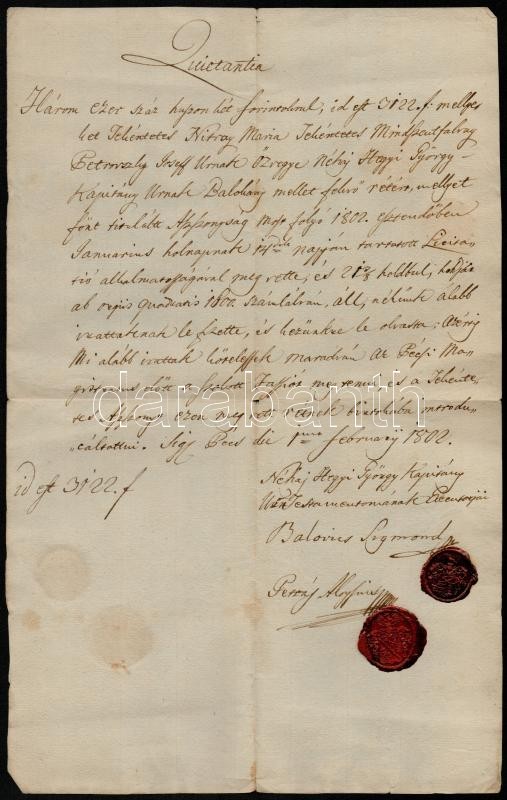 Quietantia
Három ezer száz huszon két forintokrul, id est 3122. f: mellye-
ket Tekéntetes Nitray Maria Tekéntetes Mindszentfalvay
Petrovszky Joseff Urnak Özvegye Néhaj Hegyi György
Kápitány Urnak Balokány mellet fekvö rétére, mellyet
fönt titulált Aszszonyság most folyó 1802. esztendöben
Januarius holnapnak 14dik napján tartatott Licita-
tió alkalmatosságával meg vette, és 21 holdbul, holdját
ab orgiis quadratis 1600. számlálván, áll, nékünk alább
irattaknak le fizette, és kezünkre le olvasta; Azért
Mi alább irattak kötelessek maradván Az Pécsi Ma-
gistratus elött a szokott Fassiót meg tenni, és a Tekénte-
tes Aszszonyt ezen meg vett rétnek birtokába introdu-
cáltattni. Sig. Pécs die 1ma February 1802.
id est 3122. f
Néhaj Hegyi György Kapitány
Ur Testamentomának Executorjai
Balovics Sigmond
Petráß Aloysius
darabanth